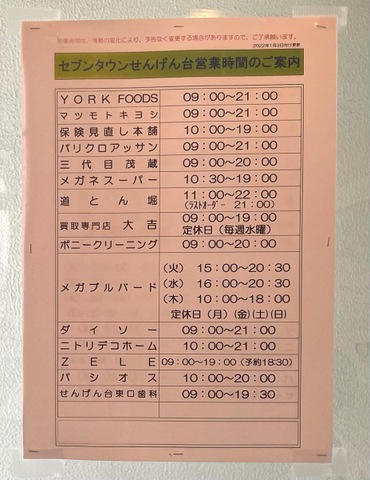 営業時間は、情勢の変化により、予告なく変更する場合がありますので、ご了承願います。
2022年1月3日付け更新
セブンタウンせんげん台営業時間のご案内
YORK FOODS 09:00～21:00
マツモトキヨシ 09:00～21:00
保険見直し本舗 10:00～19:00
パリクロアッサン 09:00～21:00
三代目茂蔵 09:00～20:00
メガネスーパー 10:30～19:00
道とん堀 11:00～22:00
(ラストオーダー 21:00)
買取専門店 大吉 09:00～19:00
定休日(毎週水曜)
ポニークリーニング 09:00～20:00
メガブルバード (火) 15:00～20:30
(水) 16:00～20:30
(木) 10:00～18:00
定休日(月)(金)(土)(日)
ダイソー 09:00～21:00
ニトリデコホーム 10:00～21:00
ZELE 09:00～19:00(予約18:30)
パシオス 10:00～20:00
せんげん台東口歯科 09:00～19:30